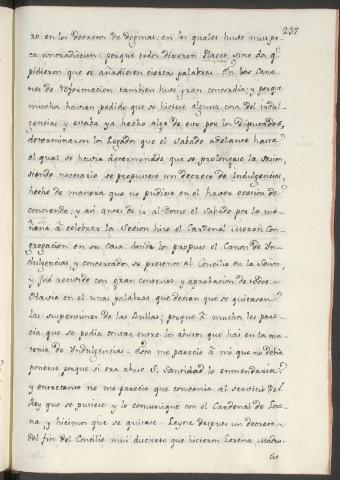 237
ro en los decretos de dogmas: en los quales huvo muy po-
ca contradicion; porque todos dixeron Placet, sino dos q͂
pidieron que se añadiesen ciertas palabras. En los Cano-
nes de reformacion tambien huvo gran concordia; y porq͂
muchos havian pedido que se hiciese alguna cosa del indul-
gencias y estaba ya hecho algo de esto por los Diputados,
determinaron los Legados que el Sabado adelante hasta
el qual se havia determinado que se prolongase la Sesion,
siendo necesario se propusiese un decreto de Indulgencias,
hecho de manera que no pudiese en el haver ocasion de
contienda; y asi antes de ir al Domo el Sabado por la ma-
ñana á celebrar la Sesion hizo el Cardenal Moron Con-
gregacion en su casa donde les propuso el Canon de In-
dulgencias, y concertados se presentó al Concilio en la Sesion,
y fué recivido con gran contento y aprobacion de todos.
Havia en el unas palabras que decian que se quitasen
las suspensiones de las Bullas; porque á muchos les pare-
cia que se podia contar entre los abusos que hai en la ma-
teria de Indulgencias. Esto me parecio á mi que no debia
ponerse porque si era abuso S. Santidad lo enmendaria
y entretanto no me parecio que convenia al servicio del
Rey que se pusiese y lo comuniqué con el Cardenal de Lore-
na, y hicimos que se quitase. Leyose despues un decreto
del fin del Concilio mui discreto que hicieron Lorena, Madru-
cio